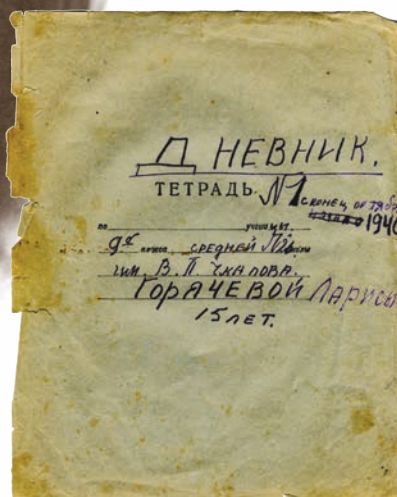 ДНЕВНИК.
ТЕТРАДЬ №1 с конец октяб
по учени
класса СРЕДНЕЙ
им. В. П. Чкалова.
ГОРАЧЕВОЙ Ларисы
15 лет.